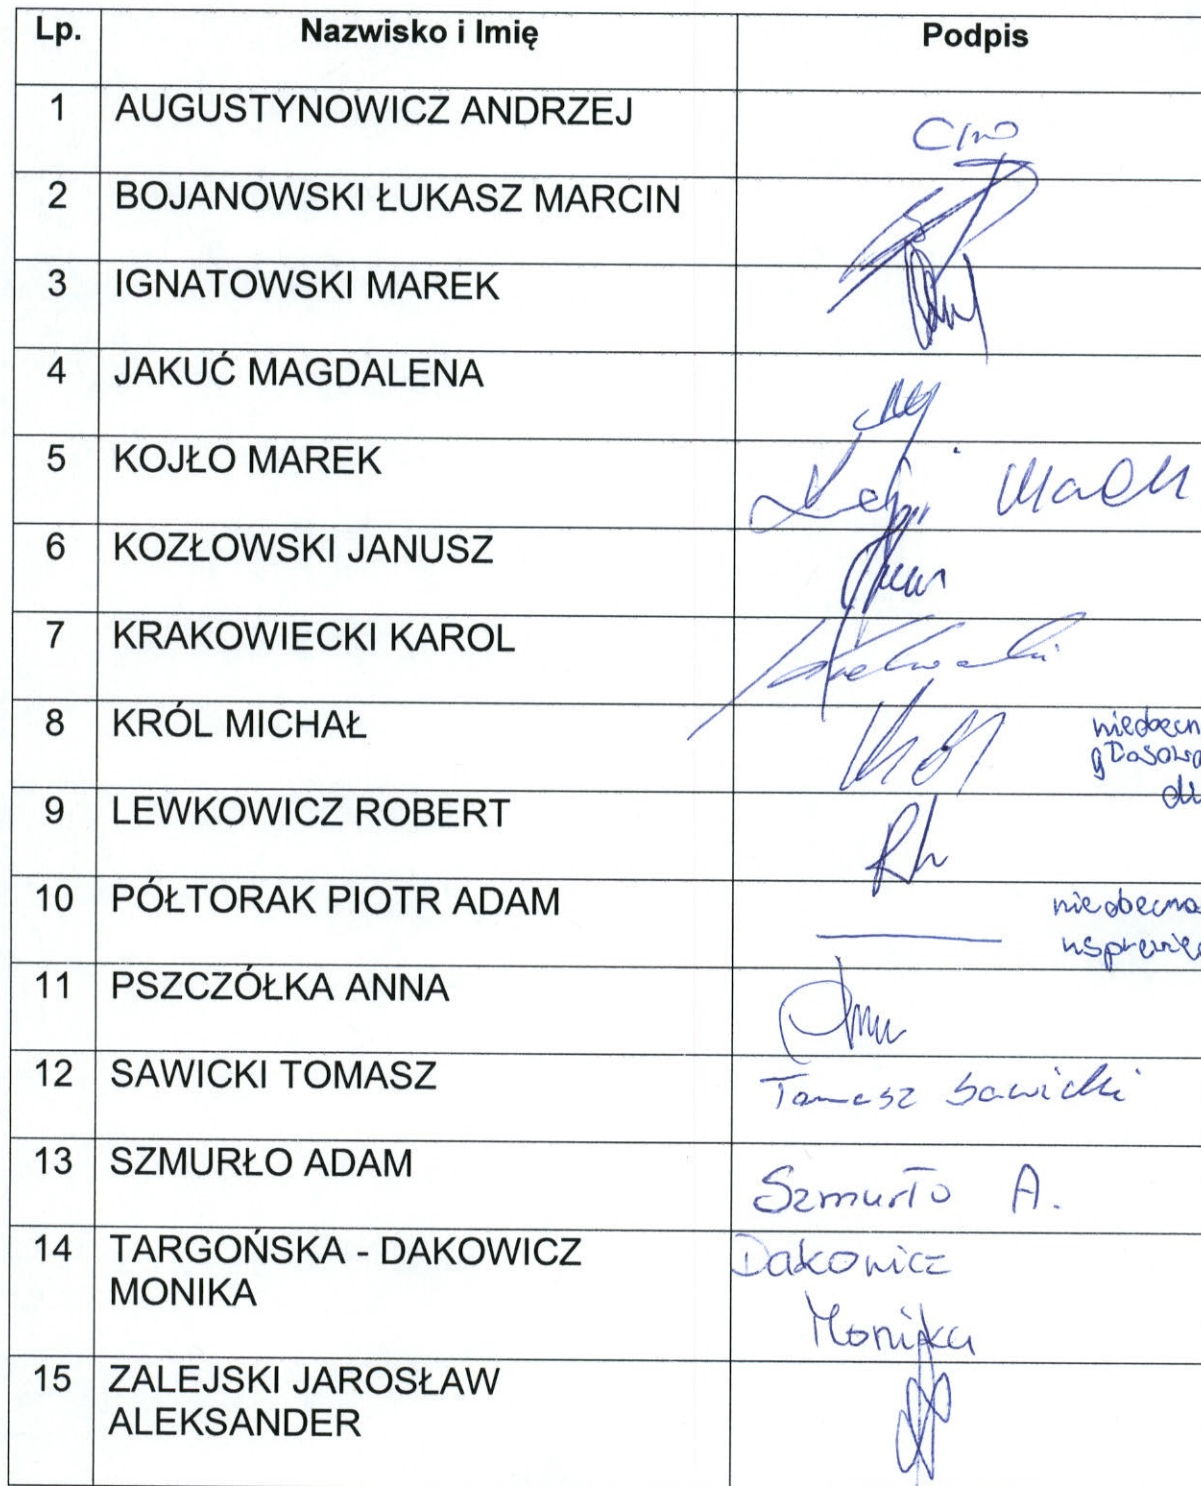 Lp. Nazwisko i Imię Podpis
1 AUGUSTYNOWICZ ANDRZEJ
2 BOJANOWSKI ŁUKASZ MARCIN
3 IGNATOWSKI MAREK
4 JAKUĆ MAGDALENA
5 KOJŁO MAREK
6 KOZŁOWSKI JANUSZ
7 KRAKOWIECKI KAROL
8 KRÓL MICHAŁ
9 LEWKOWICZ ROBERT
10 PÓŁTORAK PIOTR ADAM
11 PSZCZÓŁKA ANNA
12 SAWICKI TOMASZ Tomasz Sawicki
13 SZMURŁO ADAM Szmurło A.
14 TARGOŃSKA - DAKOWICZ Dakowicz
MONIKA Monika
15 ZALEJSKI JAROSŁAW
ALEKSANDER